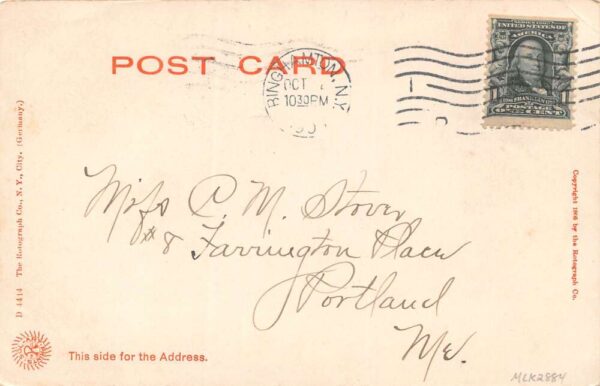 SERIES 1902
UNITED STATES OF
AMERICA
POSTAGE
ONE CENT
POST CARD
BINGHAMTON, N.Y.
OCT
1030PM
Miss C. M. Stover
# 8 Farrington Place
Portland
Me.
D 4414 The Rotograph Co., N.Y., City. (Germany.)
Copyright 1905 by the Rotograph Co.
This side for the Address.
MLK2884